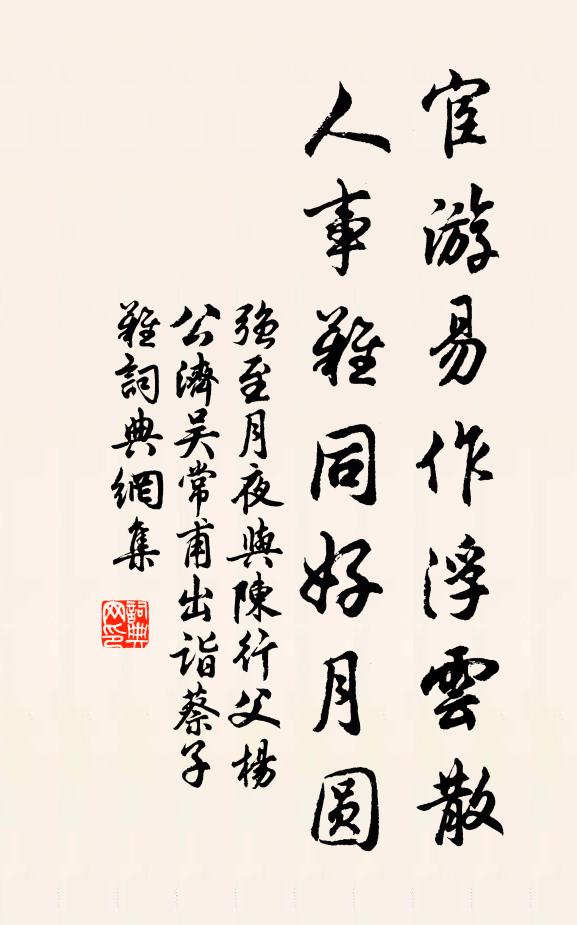 宦游易作浮雲散
人事難同好月圆
強至月夜與陳行父楊
公濟吴常甫出詣蔡子
難詞典網集
詞典
网印